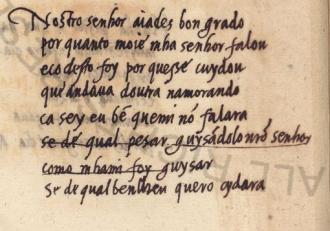 Nostro senhor aiades bon grado
por quanto moie mha senhor falou
e co desto foy por quesse cuydou
que andava doutra namorando
ca sey eu bẽ que mi nõ falara
se dẽ qual pesar guysádolo nrõ senhor
como mhami foy guysar
Se de qual ben lheu quero cydara